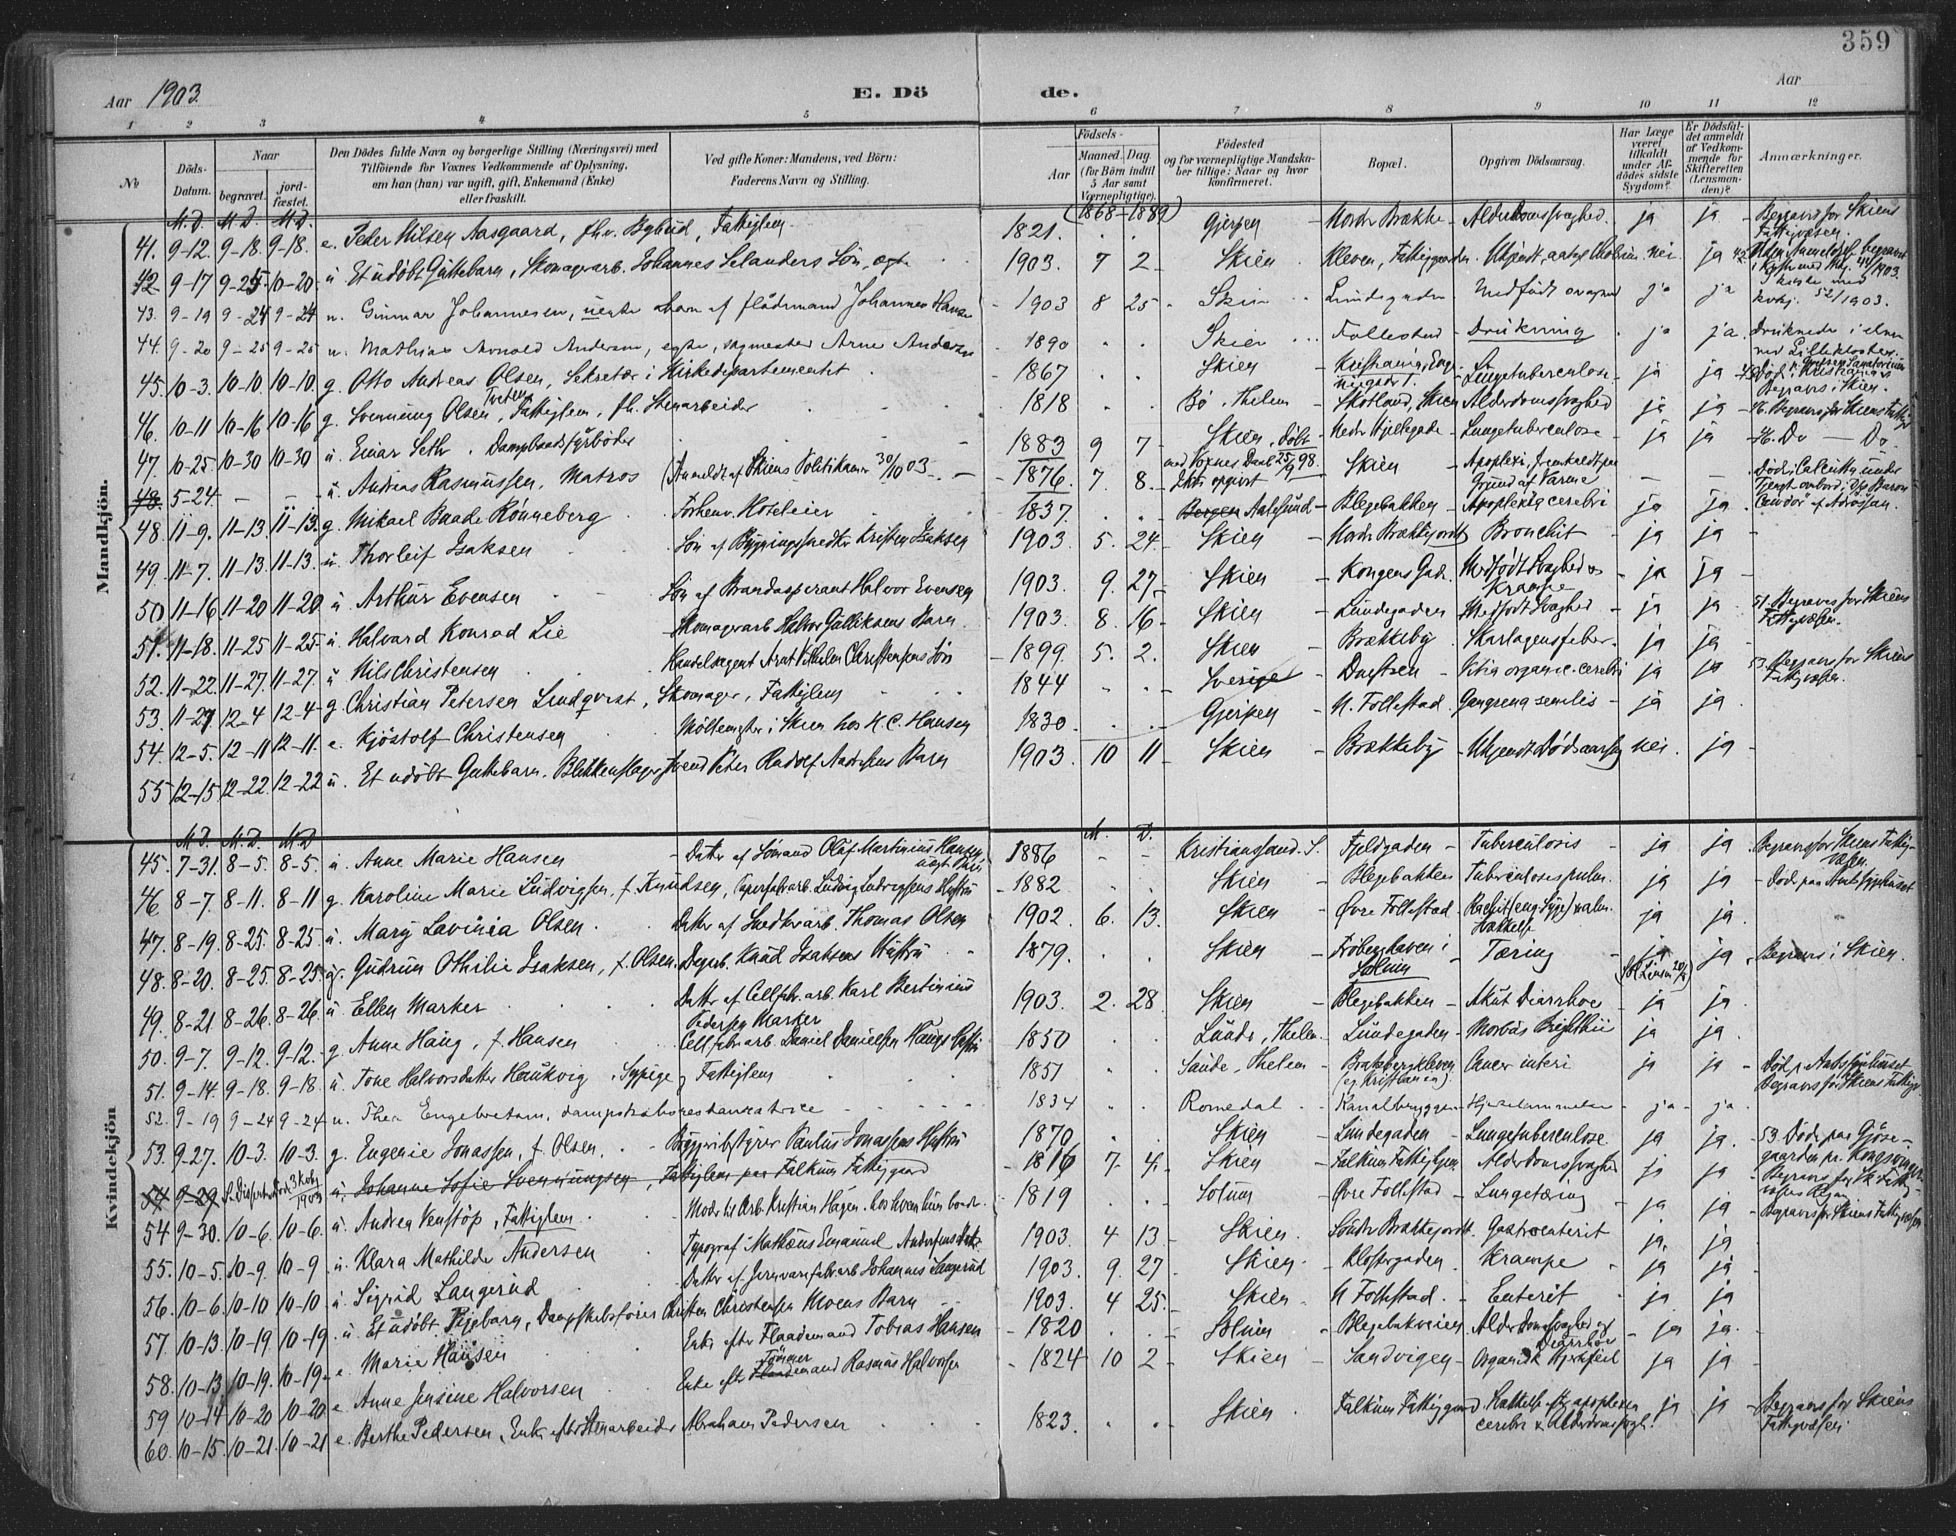 359
Aar 1903.
E. Döde.
Aar
1 2 3 4 5 6 7 8 9 10 11 12
No
Döds-Datum.
Naar
begravet.
jord-fæstet.
Den Dödes fulde Navn og borgerlige Stilling (Næringsvei) med
Tilföiende for Voxnes Vedkommende af Oplysning,
om han (hun) var ugift, gift, Enkemand (Enke)
eller fraskilt.
Ved gifte Koner: Mandens, ved Börn:
Faderens Navn og Stilling.
Födsels-
Aar
Maaned. Dag
(for Börn indtil 5 Aar samt Værnepligtige).
(1868-1889)
Födested
og for værnepligtige Mandskaber tillige: Naar og hvor konfirmeret.
Bopæl.
Opgiven Dödsaarsag.
Har Læge været tilkaldt under Afdödes sidste Sygdom?
Er Dödsfaldet anmeldt af Vedkommende for Skifteretten (Lensmanden)?
Anmærkninger.
Mandkjön.
M. D. M. D. M. D.
41. 9-12. 9-18. 9-18. e. Peter Nilsen Aasgaard, fhv. Bybud, Fattiglem. 1821. Gjerpen Nordre Brække Alderdomssvaghed. ja ja Begraves for Skiens Fattigvæsen.
42 9-17 9-25. 10-20. u Et udöbt Guttebarn, Skomagerarb. Johannes Selanders Sön, egte 1903. 7 2. Skien Kleven, Fattiggaarden. nei ja
43. 9-19 9-24 9-24 u. Gunnar Johannesen, uegte barn af flådemand Johannes Hansen 1903 8 25 Skien Lundegaden Medfödt svaghed ja ja
44. 9-20 9-25 9-25 u. Mathias Arnold Andersen, egte, sagmester Arne Andersen 1890 Skien Follestad Drukning ja ja. Druknede i elven ved Lilleklosteren.
45. 10-3. 10-10. 10-10. g. Otto Andreas Olsen, Sekretær i Kirkedepartementet 1867 Skien Lungetuberculose ja ja Begraves i Skien.
46. 10-11 10-16 10-16 g. Svennung Olsen Treten, Fattiglem, fh. Stenarbeider 1818 Bö, Thelem. Skotland, Skien Alderdomssvaghed ja ja Begraves for Skiens Fattigv.
47. 10-25. 10-30 10-30 u. Einar Seth. Dampbaadsfyrböder 1883 9 7 Skien, döbt Nedre Hjellegade Lungetuberculose ja ja Do — Do
48. 5-24. — — u. Andreas Rasmussen, Matros (Anmeldt af Skiens Politikamer 30/10 03 1876 7. 8. Skien Apoplexi, fremkaldt paa Grund af Varme — — Död i Calcutta under
48. 11-9. 11-13 11-13. g. Mikael Baade Rönneberg Forhenv. Hoteleier 1837. Bergen Aalesund Blegebakken Apoplexia cerebri ja ja
49. 11-7. 11-13. 11-13. u. Thorleif Isaksen Sön af Bygningssnedker Kristen Isaksen 1903 5. 24. Skien Nordre Brækkejordet Bronchit ja ja
50 11-16. 11-20 11-20. u Arthur Evensen Sön af Brandasperant Halvor Evensen 1903. 9. 27. Skien Kongens Gade Medfödt Svaghed & Krampe ja ja
51. 11-18. 11-25 11-25 u. Halvard Konrad Lie Skomagerarb. Halvor Gulliksens Barn 1903. 8. 16 Skien Lundegaden Medfödt Svaghed ja ja. 51. Begraves for Skiens Fattigvæsen.
52. 11-22. 11-27. 11-27 u Nils Christensen Handelsagent Arnt Vilhelm Christensens Sön 1899. 5. 2. Skien Brækkeby Skarlagensfeber ja ja
53. 11-27 12-4 12-4 g. Christian Petersen Lindqvist, Skomager, Fattiglem 1844 Sverige Vitium organic. cerebri ja ja 53. Begraves for Skiens Fattigvæsen.
54. 12-5. 12-11 12-11. e. Kjöstolf Christensen Möllemester i Skien hos H. C. Hansen 1830. Gjerpen N. Follestad. Gangrena senilis ja ja
55 12-15. 12-22. 12-22 u. Et udöbt Guttebarn. Blikkenslagersvend Peter Rudolf Barn 1903. 10 11 Skien Brækkeby Ukjendt Dödsaarsag nei. ja
Kvindekjön
M. D. M. D. M. D M. D.
45. 7-31. 8-5. 8-5. u. Anne Marie Hansen Datter af Sömand Oluf Martinius Hansen 1886 Kristianssand. S. Fjeldgaden Tuberculosis ja ja Begraves for Skiens Fattigvæsen.
46 8-7. 8-11. 8-11 g. Karoline Marie Ludvigsen, f. Knudsen, Papirfabr.arb. Ludvig Ludvigsens Hustru 1882 Skien Blegebakken Tuberculosis pulm. ja ja Död paa Amtssygehuset
47. 8-19. 8-25. 8-25. u. Mary Lavinia Olsen Datter af Snedkerarb. Thomas Olsen 1902. 6. 13. Skien Övre Follestad ja ja.
48. 8-20. 8-25. 8-25 g. Gudrun Othilie Isaksen, f. Olsen. Knud Isaksens Hustru 1879. Skien Solum Tæring ja ja Begraves i Skien.
49. 8-21 8-26. 8-26. u Ellen Marker Datter af Cellfabr.arb. Karl Bertinius Pedersen Marker 1903. 2. 28 Skien Blegebakken Akut Diarrhoe ja ja
50. 9-7. 9-12. 9-12. g. Anne Haug, f. Hansen Cellfabr.arb. Daniel Danielsen Haugs Hustru 1850 Lunde, Thelem. Lundegaden Morbus Brightii ja ja
51. 9-14. 9-18. 9-18. u Tone Halvorsdatter Haukvig, Sypige, Fattiglem 1851 Saude, Thelem Cancer uteri ja ja Död paa Amtssygehuset Begraves for Skiens Fattigv.
52. 9-19 9-24 9-24 u. Thea Engebretsen, dampskibsrestauratrice 1834 Romedal Kanalbryggen ja ja.
53. 9-27. 10-3. 10-3. g. Eugenie Jonassen, f. Olsen. Paulus Jonassens Hustru 1870 Skien Lundegaden Lungetuberculose ja ja. 53. Död paa Gjösegaarden pr. Kongsvinger
54 9-29 1903 u. Johanne Sofie Svennungsen, Fattiglem paa Falkum Fattiggaard 1816 7. 4. Skien Falkum Fattiggaard Alderdomssvaghed ja ja
54 9-30. 10-6. 10-6. u. Andrea Venstöp, Fattiglem Moder til Arb. Kristian Hagen, hos hvem hun boede 1819 Solum Övre Follestad Lungetæring ja ja Begraves for Skiens Fattigvæsen
55. 10-5. 10-9. 10-9. u. Klara Mathilde Andersen Typograf Mathæus Emanuel Andersens Datter 1903. 4 13 Skien. Söndre Brækkejordet Gastroenterit ja. ja
56. 10-6. 10-10 10-10 u. Sigrid Langerud Datter af Jernvarefabr.arb. Johannes Langerud 1903. 9. 27 Skien Klostergaden Krampe ja ja
57 10-13. 10-19 10-19 u. Et udöbt Pigebarn, Dampskibsförer Christen Christensen Moens Barn 1903. 4 25. Skien N Follestad. Enterit ja ja
58. 10-13 10-19. 10-19. e. Marie Hansen Enke efter Flaademand Tobias Hansen 1820 Solum Blegebakveien. Alderdomssvaghed og Diarrhoe ja ja.
59 10-14 10-20 10-20 e Anne Jensine Halvorsen Enke efter Tömmermand Rasmus Halvorsen 1824 10 2 Skien Sandvigen Organisk Hjertefeil ja ja
60. 10-15. 10-21. 10-21 e. Berthe Pedersen, Enke efter Stenarbeider Abraham Pedersen 1823. Skien Falkum Fattiggaard. ja ja Begraves for Skiens Fattigvæsen